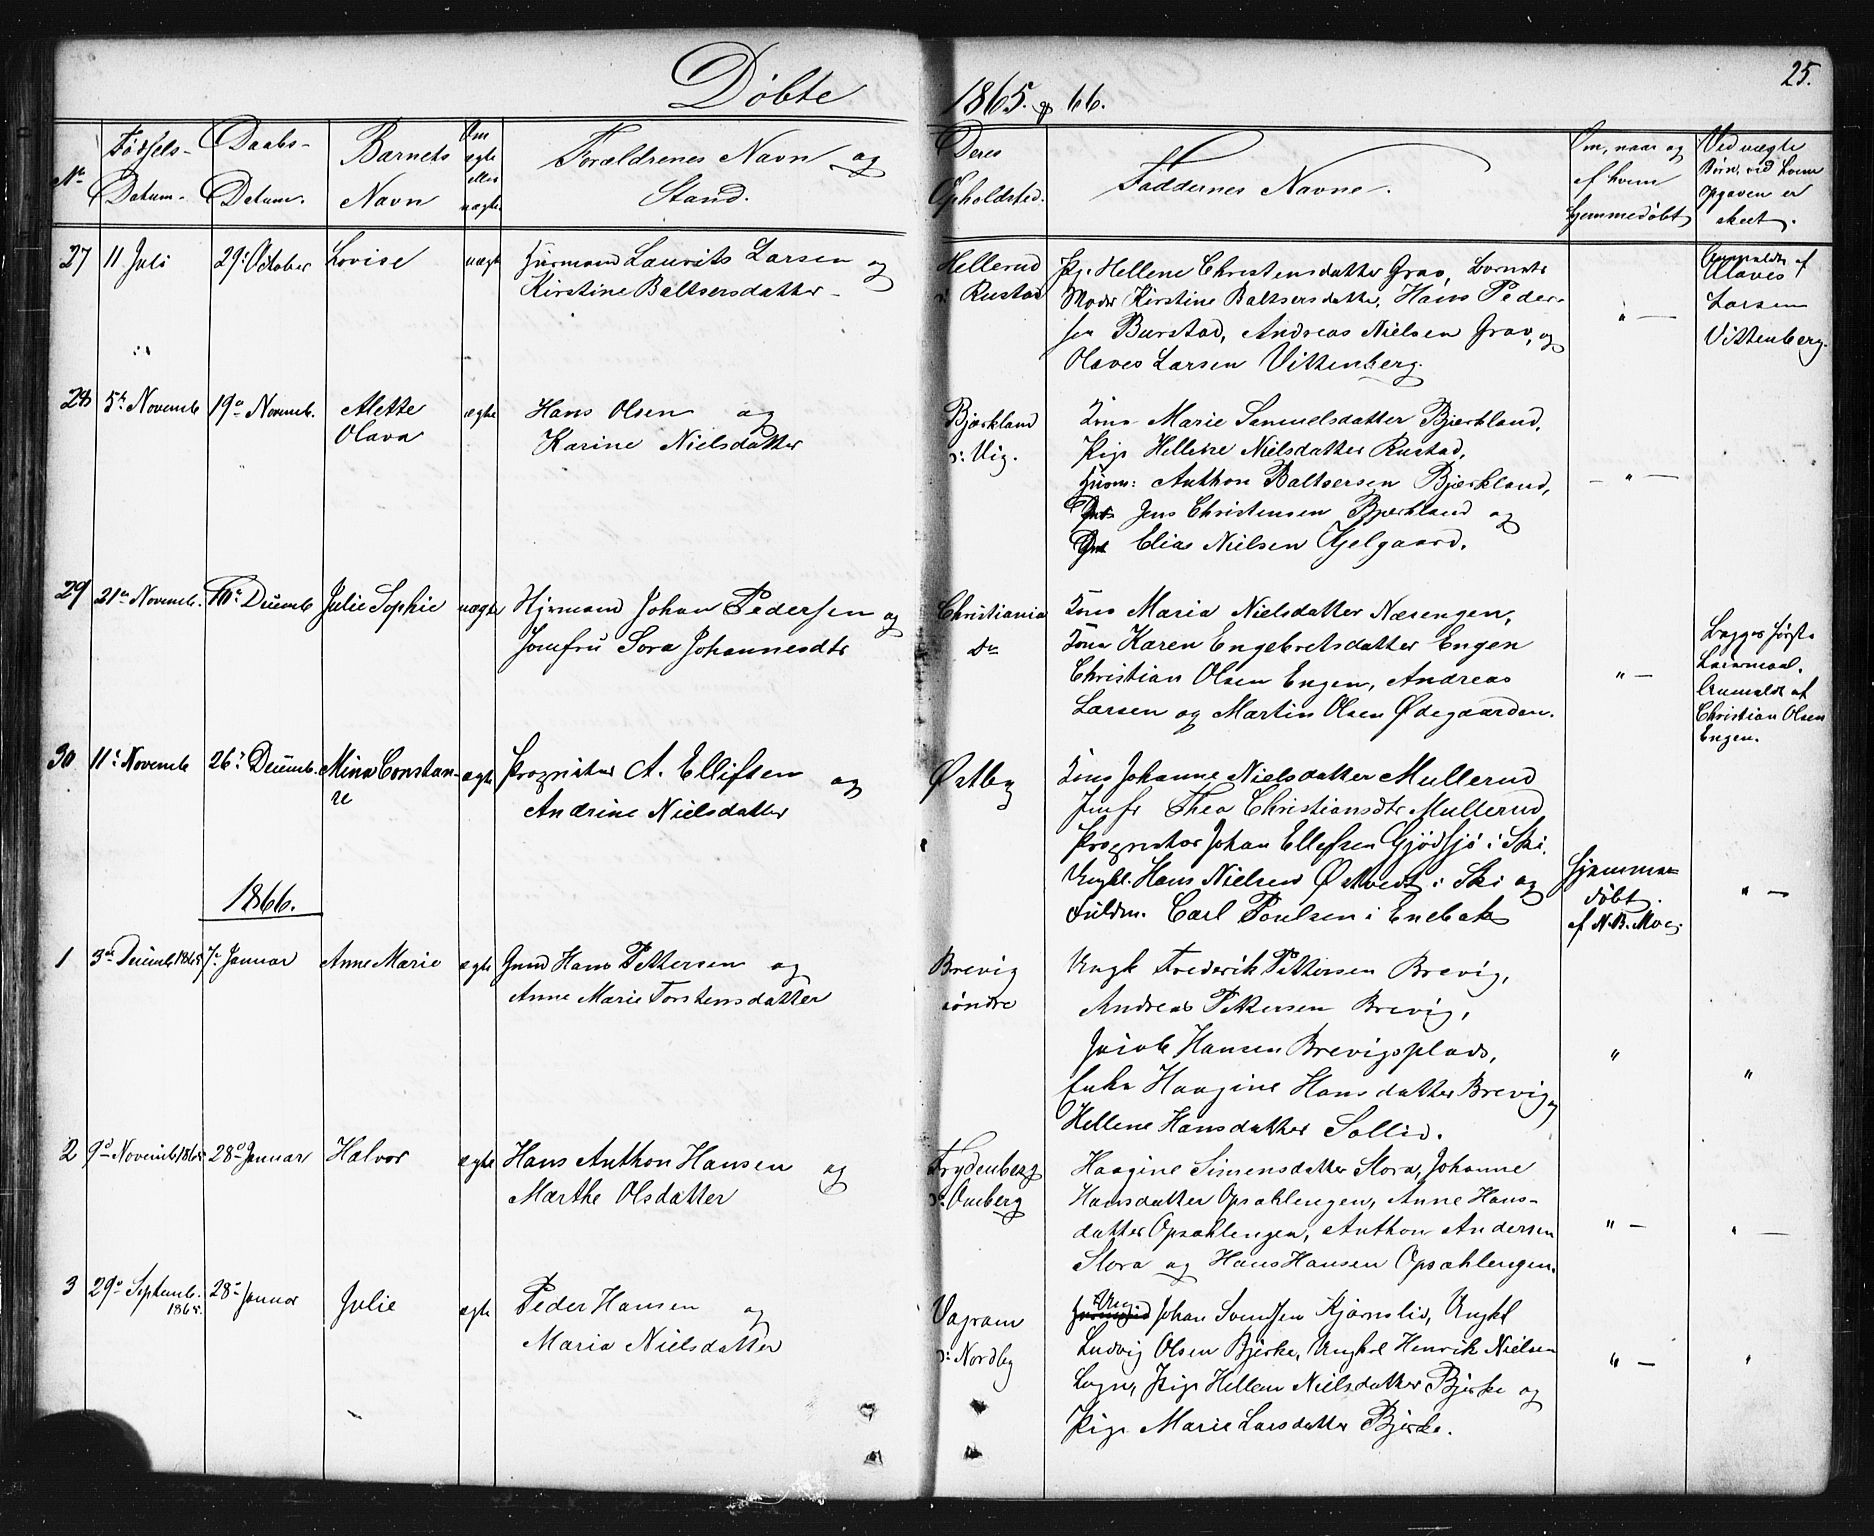 Döbte 1865. og 66.
25.
No
Födsels-
Datum.
Daabs-
Datum.
Barnets
Navn
Om
ægte
eller
uægte
Forældrenes Navn og
Stand.
Deres
Opholdsted.
Faddernes Navne.
Om, naar og
af hvem
hjemmedöbt
Ved uægte
Börn, ved hvem
Opgaven er
skeet.
27 11 Juli 29. October Lovise uægte Huusmand Laurits Larsen og
Kirstine Baltsersdatter
Hellerud
v: Rustad
Pige Hellene Christensdatter Grav, Barnets
Moder Kirstine Baltsersdatter, Hans Peder-
sen Burstad, Andreas Nielsen Grav, og
Olaves Larsen Vittenberg.
"
Anmeldt af
Olaves
Larsen
Vittenberg.
28 5te Novemb 19de Novemb. Alette
Olava
ægte Hans Olsen og
Karine Nielsdatter
Bjerkland
v: Vig.
Kone Marie Samuelsdatter Bjerkland,
Pige Hellene Nielsdatter Rustad,
Huusm: Anthon Baltsersen Bjerkland,
Jens Christensen Bjerkland og
Elias Nielsen Kjelgaard.
"
29 21de Novemb. 10de Decemb Julie Sophie uægte Johan Pedersen og
Jomfru Sora Johannesdtr
Christiania
Do
Kone Maria Nielsdatter Næsengen,
Kone Karen Engebretsdatter Engen
Christian Olsen Engen, Andreas
Larsen og Martin Olsen Ødegaarden.
"
Begges förste
Leiermaal.
Anmeldt af
Christian Olsen
Engen.
30 11te Novemb 26de Decemb. Mina Constan-
ze
ægte Proprietær A. Ellifsen og
Andrine Nielsdatter
Østby
Kone Johanne Nielsdatter Mullerud
Jomfr Thea Christiansdtr Mullerud
Proprietær Johan Ellefsen Gjödsjö i Ski.
Ungk. Hans Nielsen Østvedt i Ski og
Fuldm. Carl Poulsen i Enebak
Hjemme-
döbt.
af N. B. Moe.
"
1866.
1 3de Decemb 1865 7de Januar Anne Marie ægte Gmd Hans Pettersen og
Anne Marie Torstensdatter
Brevig
söndre
Ungk Frederik Pettersen Brevig,
Andreas Pettersen Brevig,
Jacob Hansen Brevigsplads,
Enke Haagine Hansdatter Brevig og
Hellene Hansdatter Sollid.
"
"
2 9de Novemb 1865 28de Januar Halvor ægte Hans Anthon Hansen og
Marthe Olsdatter
Frydenberg
v: Omberg
Haagine Simensdatter Slora, Johanne
Hansdatter Opsahlengen, Anne Hans-
datter Opsahlengen, Anthon Andersen
Slora og Hans Hansen Opsahlengen.
"
"
3 29de Septemb. 28de Januar Julie ægte Peder Hansen og
1865.
Maria Nielsdatter
Vagram
v: Nordby
Ung Johan Svendsen Kjærnslid, Ungkl
Ludvig Olsen Bjerke, Ungkl Henrik Nielsen
Pige Hellene Nielsdatter Bjerke og
Pige Marie Larsdatter Bjerke.
"
"